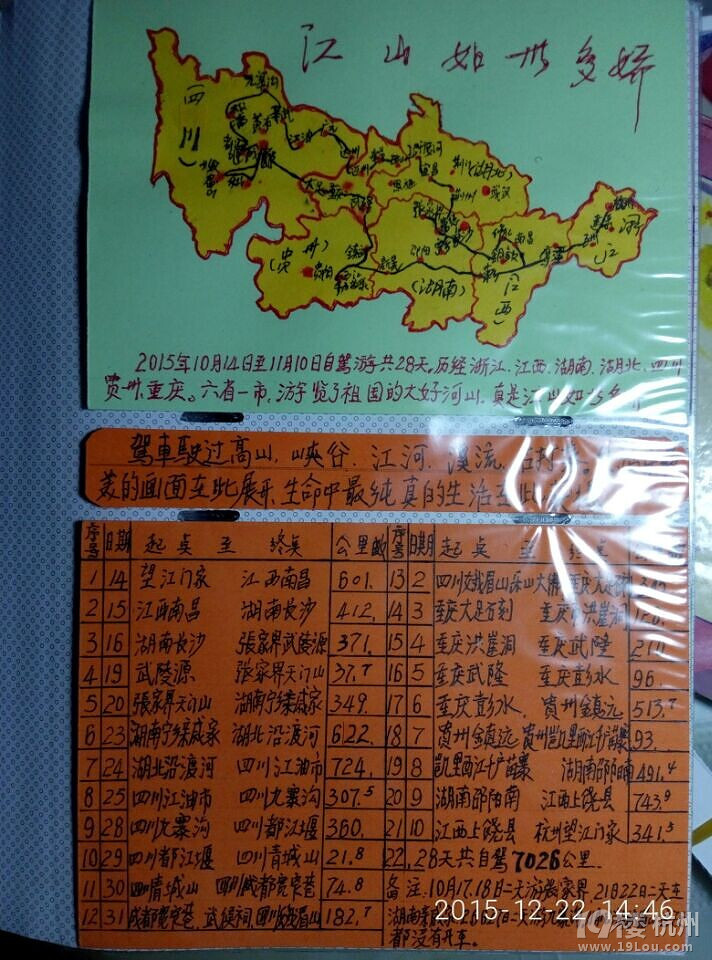 江山如此多娇
四川
九寨沟
江油
广元
达州
万州
恩施
宜昌
荆州
武汉
(湖北)
大足
重庆
武隆
张家界
长沙
南昌
(贵州)
贵阳
镇远
邵阳
(湖南)
(江西)
浙江
2015年10月14日至11月10日自驾游共28天。历经浙江、江西、湖南、湖北、四川
贵州、重庆。六省一市,游览了祖国的大好河山,真是江山如此多
驾車駛过高山、峡谷、江河、溪流、
美的画面在此展示,生命中最纯真的生活在此
序号 日期 起点至终点 公里数 序号 日期 起点至终点
1 14 望江门家 江西南昌 601. 13 2 四川峨眉山乐山大佛 重庆大足
2 15 江西南昌 湖南长沙 412. 14 3 重庆大足石刻 重庆市洪崖洞
3 16 湖南长沙 張家界武陵源 371. 15 4 重庆洪崖洞 重庆武隆
4 19 武陵源 张家界天门山 37.7 16 5 重庆武隆 重庆彭水 96
5 20 張家界天门山 湖南宁乡亲戚家 349. 17 6 重庆彭水、 貴州鎮远 513.7
6 23 湖南宁乡亲戚家 湖北沿渡河 622. 18 7 贵州鎮远 貴州凯里西江千户苗寨 93.
7 24 湖北沿渡河 四川江油市 724. 19 8 凯里西江千户苗寨 湖南邵阳南 491.4
8 25 四川江油市 四川九寨沟 307.5 20 9 湖南邵阳南 江西上饶县 743.9
9 28 四川九寨沟 四川都江堰 360. 21 10 江西上饶县 杭州望江门家 341.5
10 29 四川都江堰 四川青城山 21.8 22, 28天共自駕7026公里.
11 30 四川青城山 四川成都宽窄巷 74.8 备注:10月17.18日二天游張家界,21日22日二天在
12 31 成都宽窄巷、武侯祠 四川峨眉山 182.7 湖南
都没有开车。
2015-12-22 14:46
19楼 杭州
www.19Lou.com